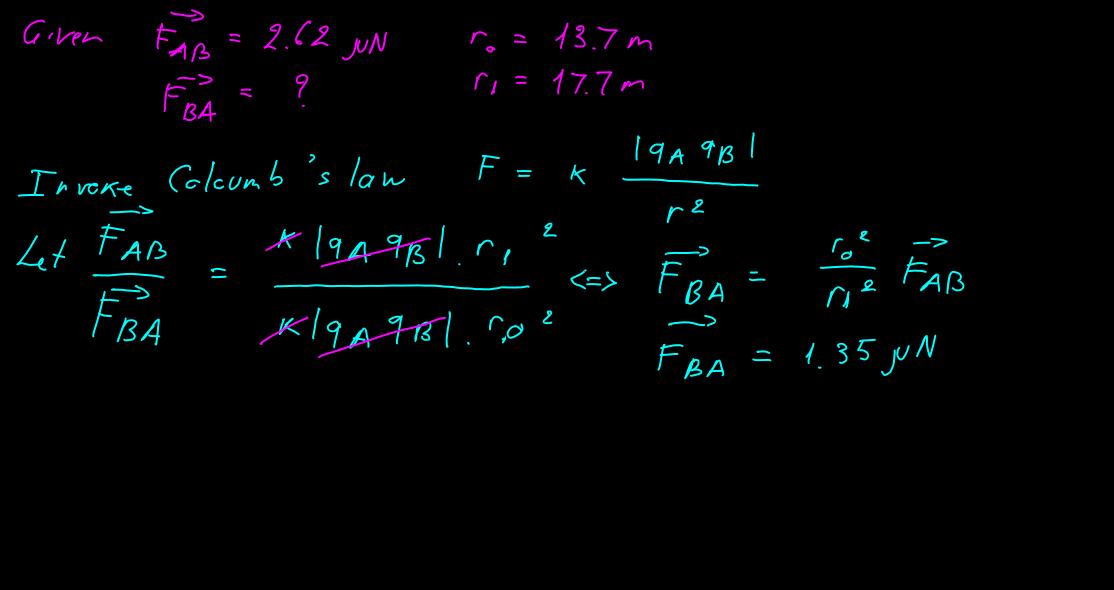 Given F⃗_AB = 2.62 μN r₀ = 13.7 m
F⃗_BA = ? r₁ = 17.7 m
Invoke Coloumb's law F = K |q_A q_B| / r²
Let F⃗_AB / F⃗_BA = K |q_A q_B| . r₁² / K |q_A q_B| . r₀² <=> F⃗_BA = r₀² / r₁² F⃗_AB
F⃗_BA = 1.35 μN